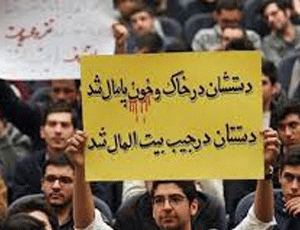 دستشان در خاک و خون پامال شد
دستتان در جیب بیت المال شد